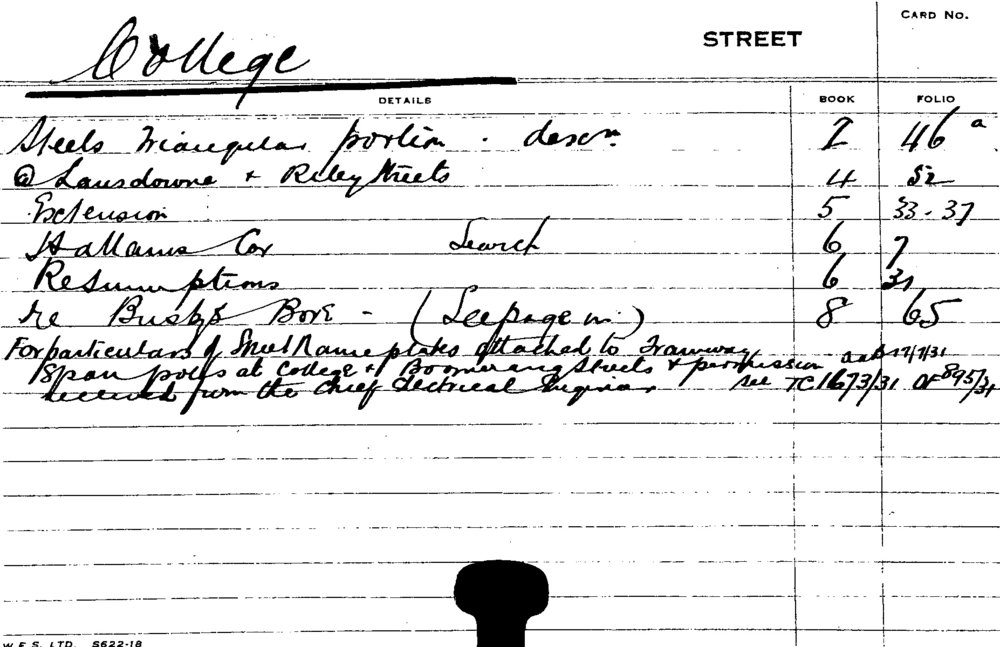 CARD NO.
College STREET
DETAILS BOOK FOLIO
Steels Triangular portion . descn. 2 46 a
@ Lansdowne + Riley Streets 4 52
Extension 5 33-37
Hallams Cor Search 6 7
Resumptions 6 31
re Busbys Bore - (Seepage in) 8 65
For particulars of Street Name plates attached to Tramway
Span poles at College + Boomerang Streets + permission 17/7/31
received from the Chief Electrical Engineer see TC1673/31 OF 895/31
W.E.S. LTD. S622-18